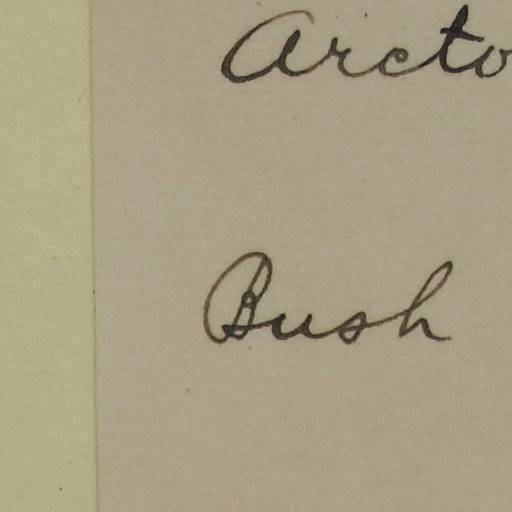 Arcto
Bush